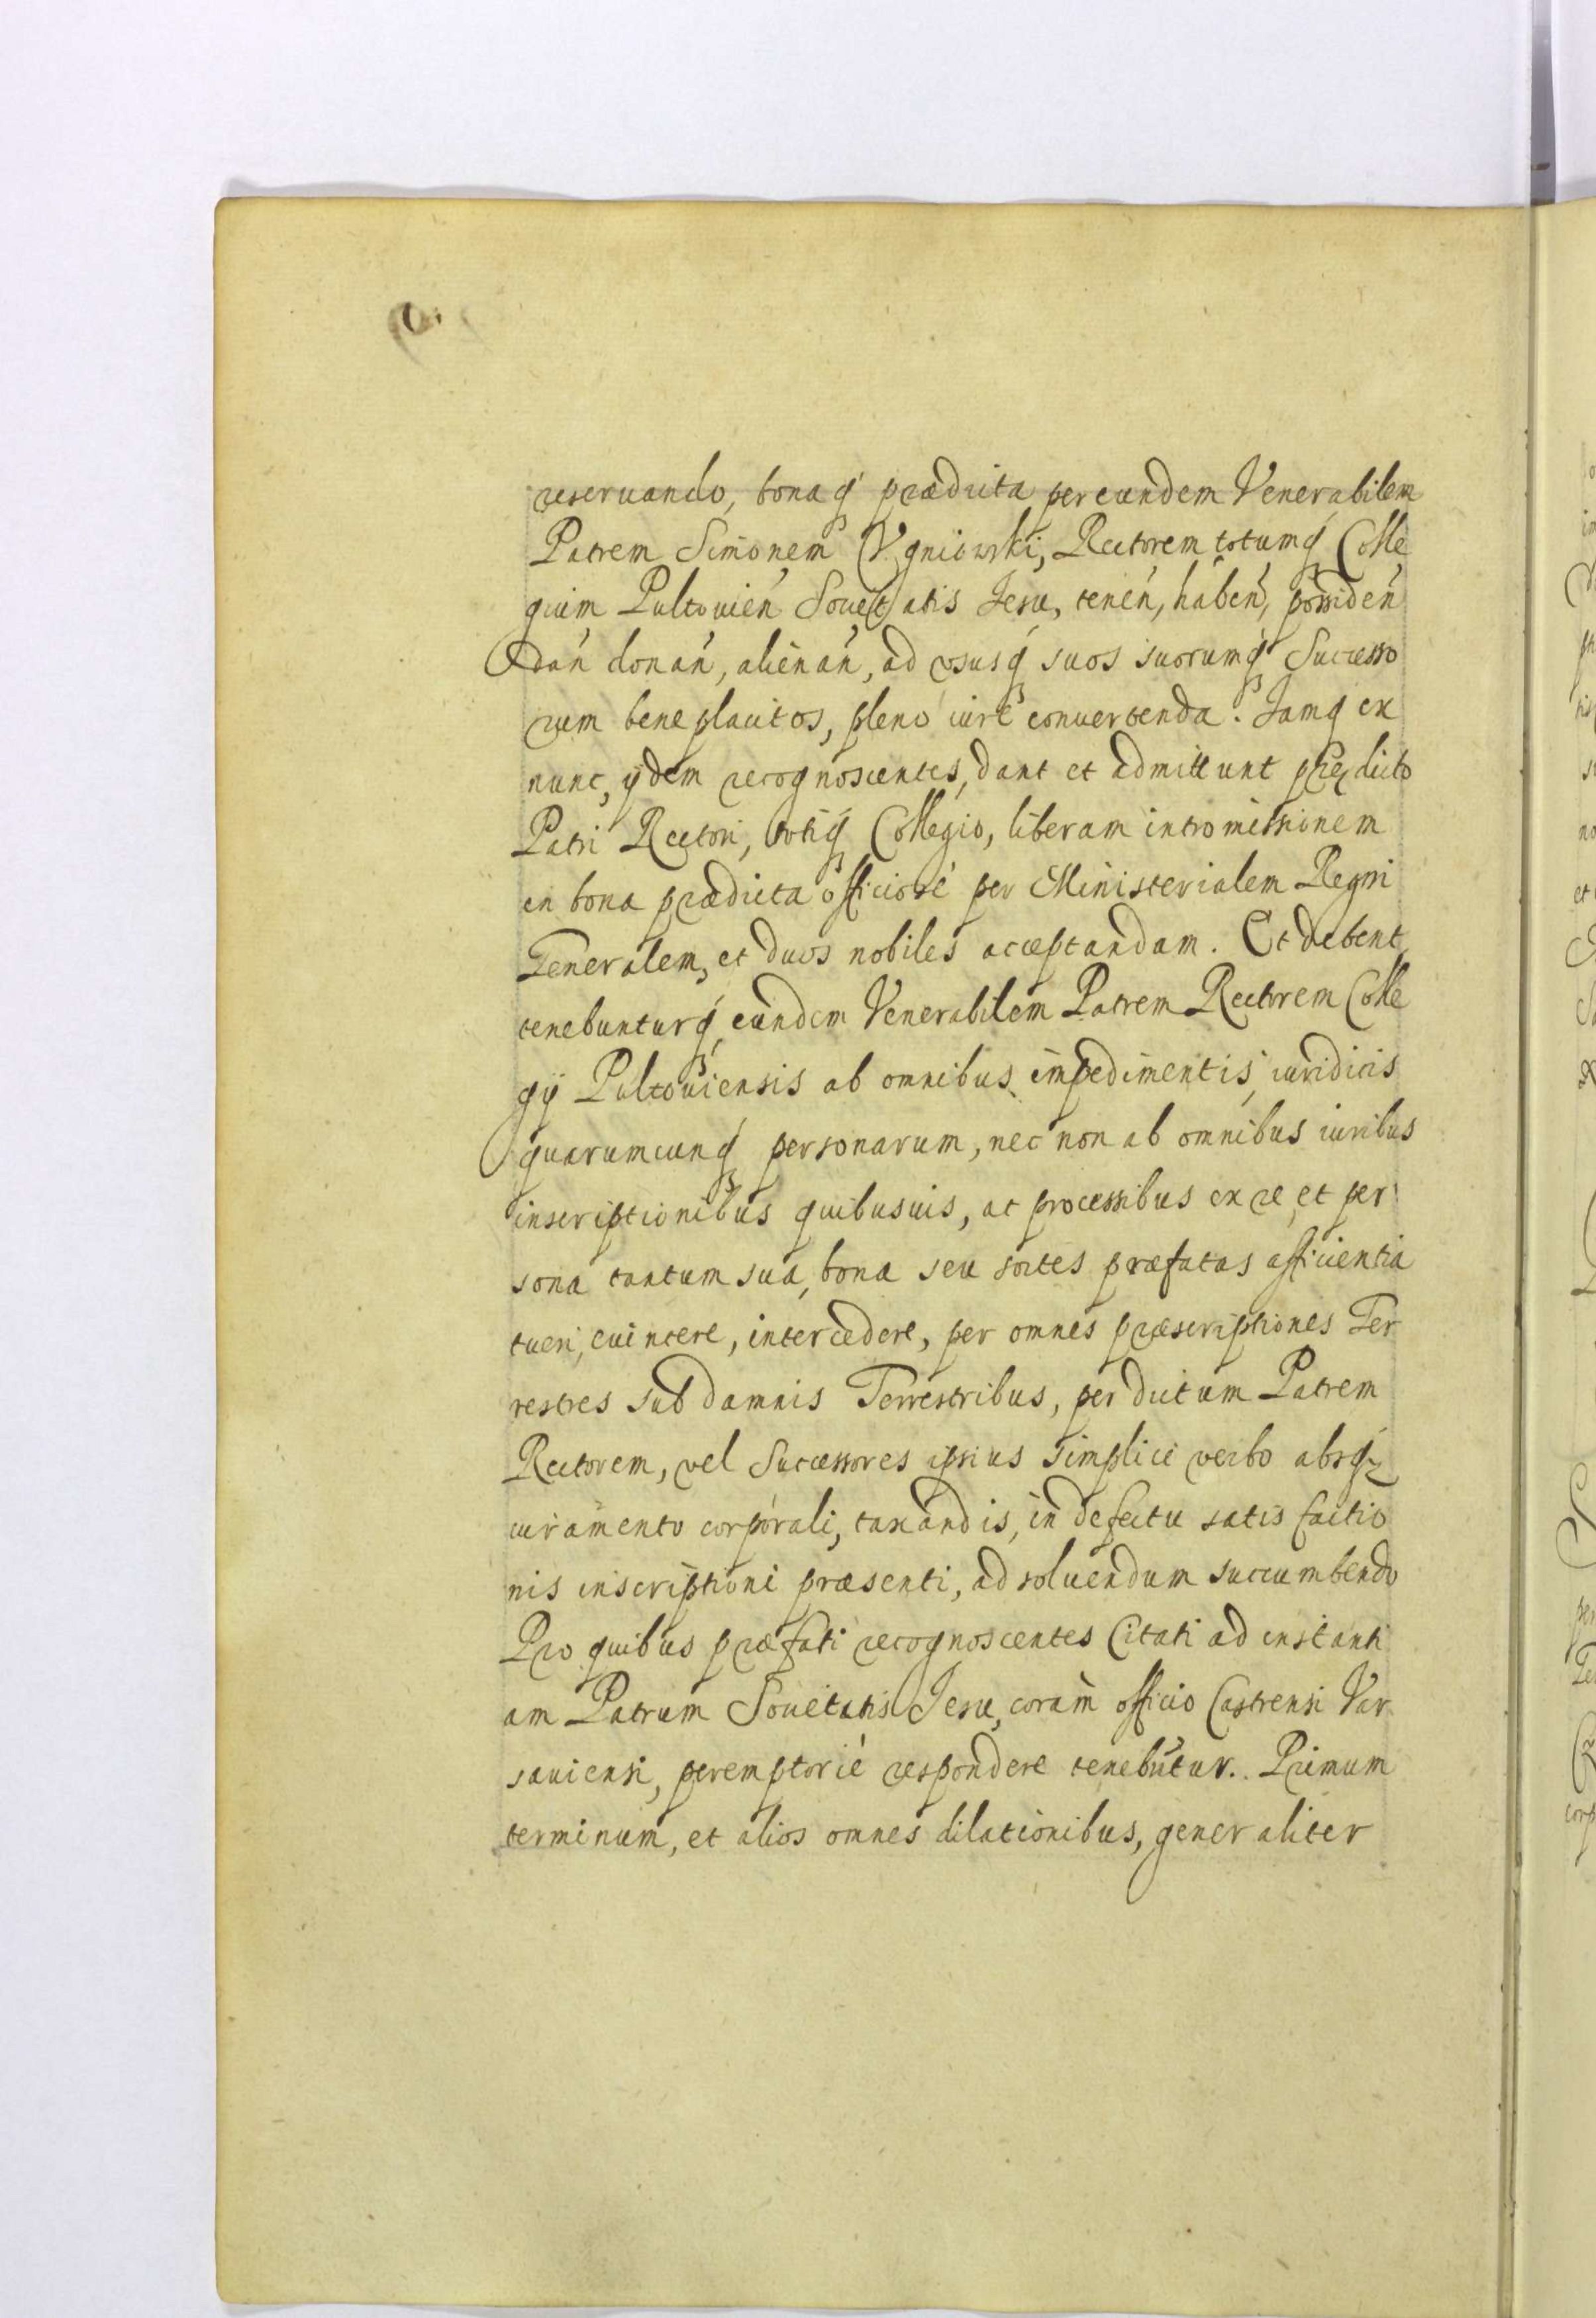 reseruando, bonaq́ꝫ prædicta per eundem Venerabilem
Patrem Simonem Vgniowski, Rectorem totumq́ꝫ Colle
gium Pultouień Societatis Jesu, tenen̄, haben̄, possiden̄
dan̄ donan̄, alienan̄, ad vsusq́ꝫ suos suorumq́ꝫ Successo
rum beneplacitos, pleno iure conuertenda. Jamq́ꝫ ex
nunc, ijdem recognoscentes, dant et admittunt prędicto
Patri Rectori, totiq́ꝫ Collegio, liberam intromissionem
in bona prædicta officiosè per Ministerialem Regni
Generalem, et duos nobiles acceptandam. Et debent
tenebunturq́ꝫ, eundem Venerabilem Patrem Rectorem Colle
gij Pultouiensis ab omnibus impedimentis iuridicis
quarumcunq́ꝫ personarum, nec non ab omnibus iuribus
inscriptionibus quibusuis, ac processibus ex re, et per
sona tantum sua, bona seu sortes præfatas afficientia
tueri, euincere, intercedere, per omnes præscriptiones Ter
restres sub damnis Terrestribus, per dictum Patrem
Rectorem, vel Successores ipsius simplici verbo absq́ꝫ
iuramento corporali, taxandis, in defectu satis factio
nis inscriptioni præsenti, ad soluendum succumbendo
Pro quibus præfati recognoscentes Citati ad instanti
am Patrum Societatis Jesu, coram officio Castrensi Var
sauiensi, peremptoriè respondere tenebūtur. Primum
terminum, et alios omnes dilationibus, generaliter